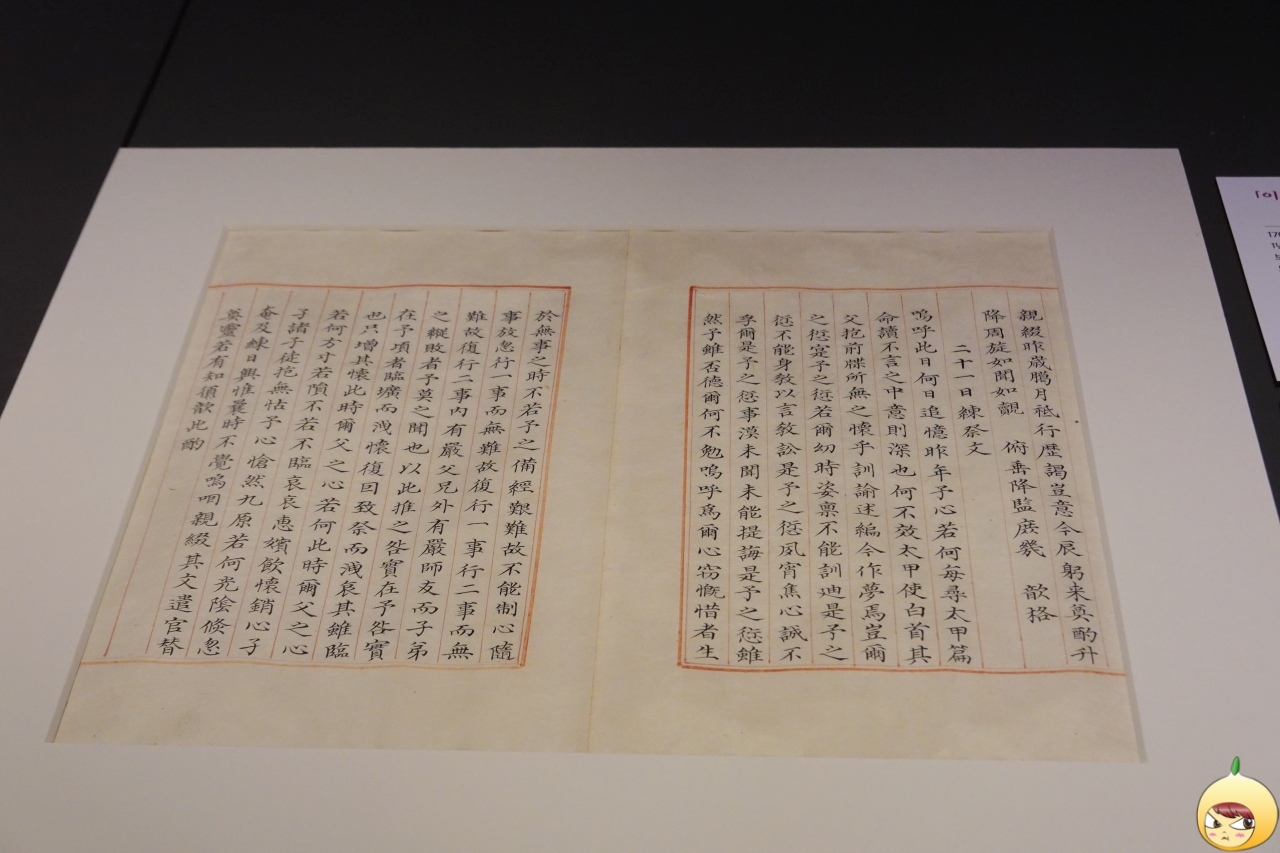 親綴昨歲臘月祗行歷謁豈意今辰躬来奠酌升
降周旋如聞如覿 俯垂降監庶幾 歆格
二十一日練祭文
嗚呼此日何日追憶昨年予心若何每尋太甲篇
命讀不言之中意則深也何不效太甲使白首其
父抱前牒所無之懷乎訓諭述編今作夢焉豈爾
之愆寔予之愆若爾幼時姿禀不能訓迪是予之
愆不能身教以言教訟是予之愆夙宵焦心誠不
孚爾是予之愆事漠未聞未能提誨是予之愆雖
然予雖否德爾何不勉嗚呼爲爾心窃慨惜者生
於無事之時不若予之備經艱難故不能制心隨
事放忽行一事而無難故復行一事行二事而無
難故復行二事內有嚴父兄外有嚴師友而子弟
之縱敗者予莫之聞也以此推之咎實在予咎實
在予頃者臨壙而洩懷復回致祭而洩哀其雖臨
也只增其懷此時爾父之心若何此時爾父之心
若何方寸若隕不若不臨哀哀惠嬪飮懷銷心子
子諸子徒抱無怙予心愴然九原若何光陰倏忽
奄及練日興惟曩時不覺嗚咽親綴其文遣官替
奠靈若有知須歆此酌
「이